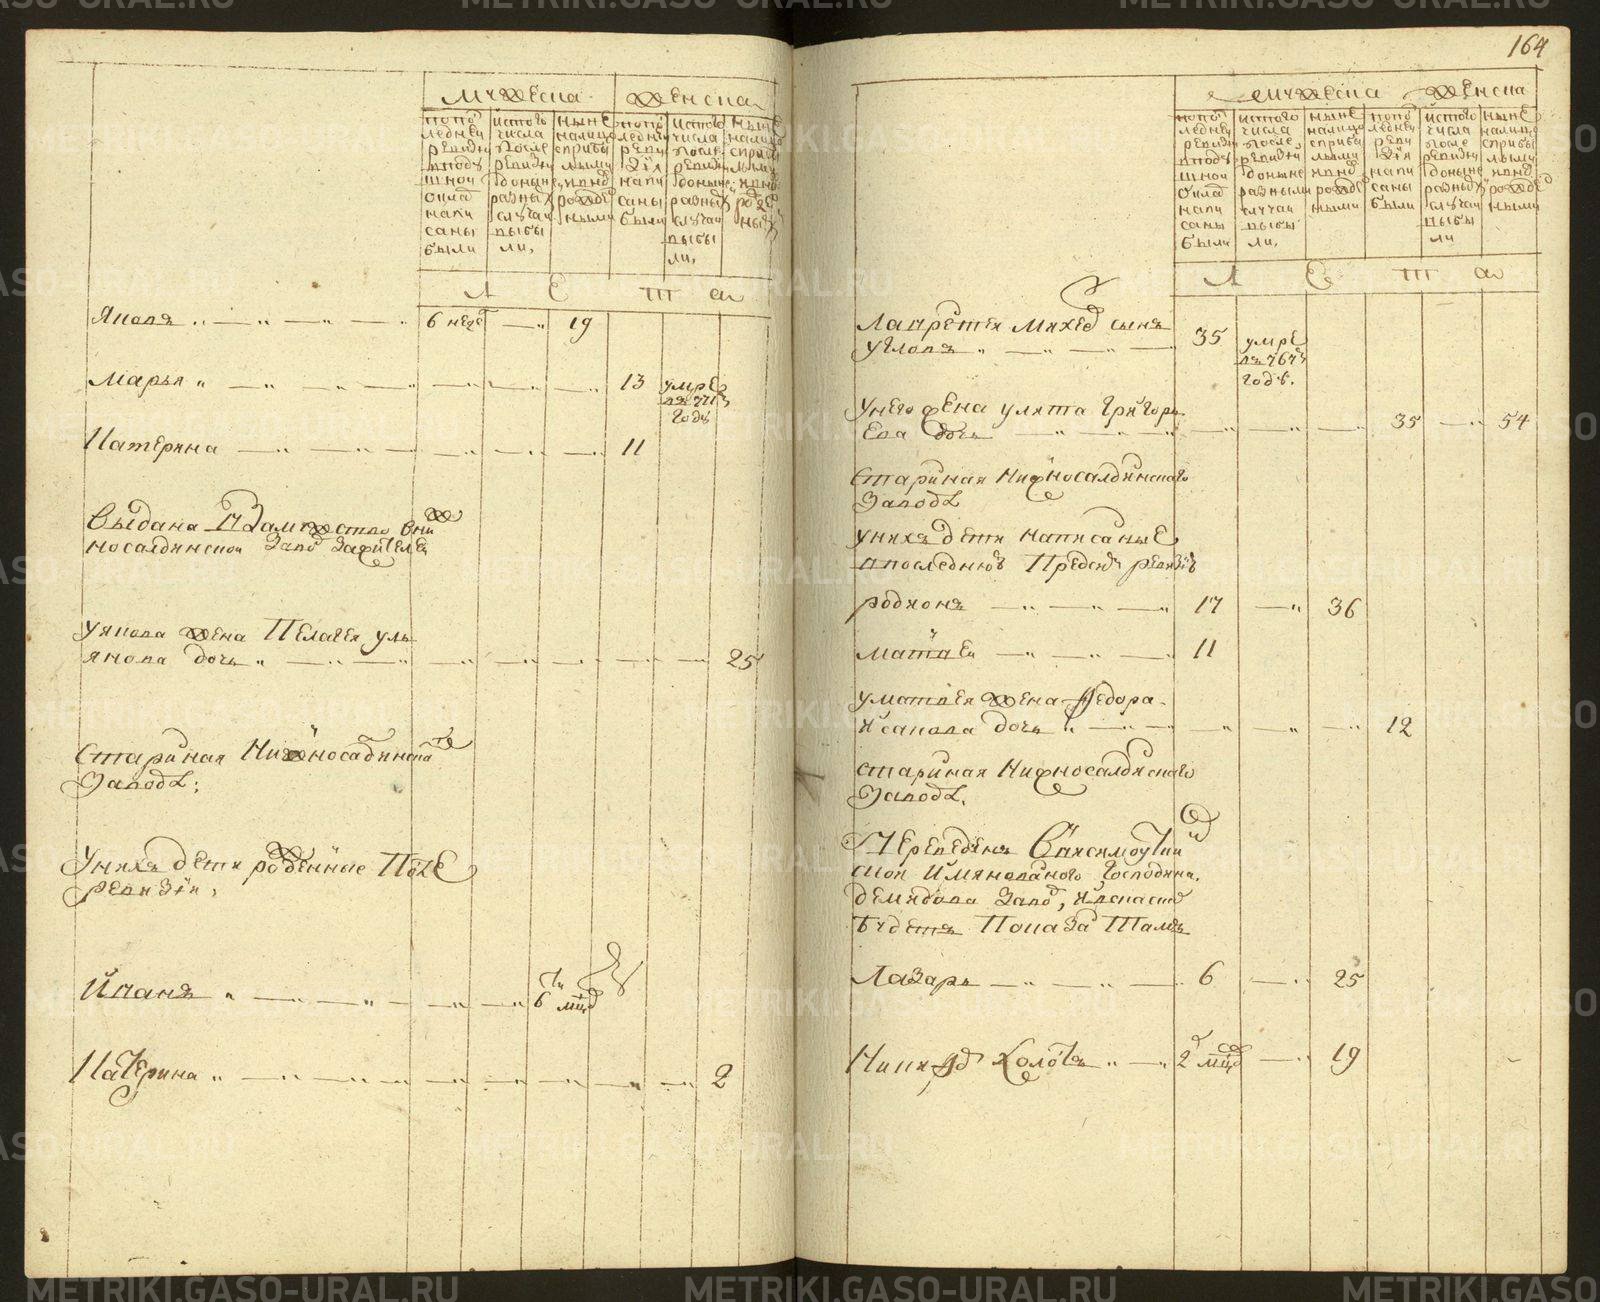 164
мужеска
женска
по по
следней
ревизии
в поду
шной
оклад
напи
саны
были
из того
числа
после
ревизии
до ныне
разных
случай
выбы
ли,
ныне
налицо
с прибы
лыми
и внов
рожде
ными
по по
следней
реви
зiи
напи
саны
были
из того
числа
после
ревизии
до ныне
разных
случай
выбы
ли,
ныне
налицо
с прибы
лыми
и внов
рожде
ных
Л Е Т а
Яковъ 6 неде 19
Марья 13 умре
въ 771 м
годѣ
Катерина 11
Выдана в замужство в ни
носалдинской завод за жителей
у Якова жена Пелагея Уль
янова дочь 25
старинная Нижносалдинска го
Завода;
У нихъ дети рожденные после
ревизiи;
Иванъ 6 мцо
Катерина 2
мужеска
женска
по по
следней
ревизии
в поду
шной
оклад
напи
саны
были
из того
числа
после
ревизии
до ныне
разными
случаи
выбы
ли,
ныне
налицо
с прибы
лыми
внов
рожде
ными
по по
следней
реви
зiя
напи
саны
были
из того
числа
после
ревизии
до ныне
разных
случаи
выбы
ли
ныне
налицо
с прибы
лыми
внов
рожде
ными
Л Е Т а
Лаврентей Михед сынъ
Угловъ 35 умре
въ 767 м
годѣ.
У него жена Улита Григорь
ева дочь 35 54
старинная Нижносалдинского
Завода
У нихъ дети написанные
в последнюю пред сим ревизiю
Родионъ 17 36
Матвей 11
У Матвея жена Федора
Исакова дочь 12
старинная Нижносалдинского
Завода.
Переведенъ в Висимоуткин
ской имянованого Господина
Демидова завод, и в сказке
будетъ показа тамъ
Лазарь 6 25
Никифор холостъ 2 мцо 19